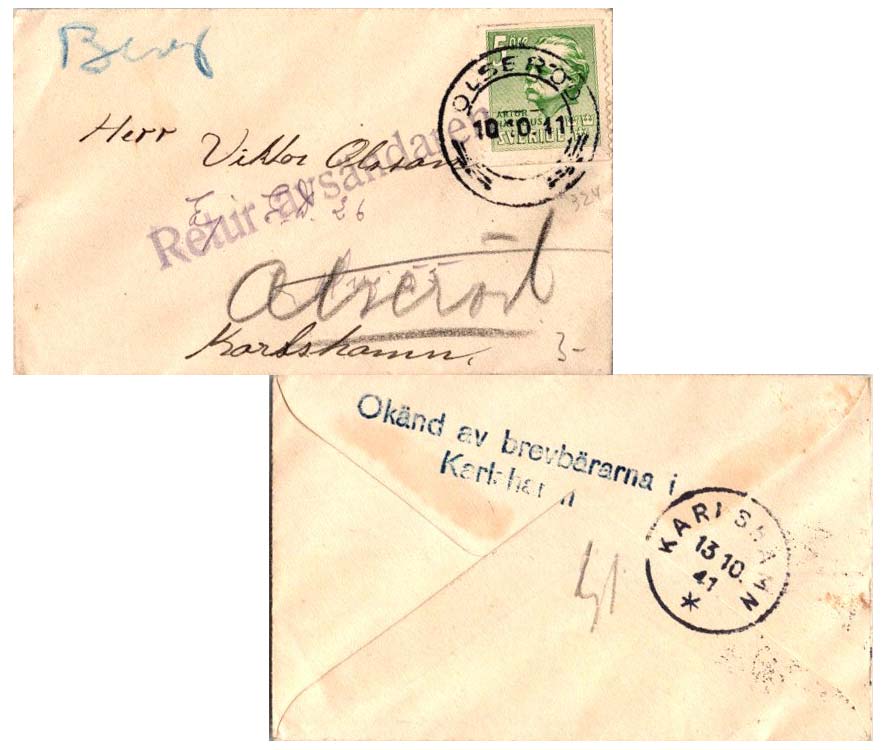 5 ÖRE
OLSERÖD
10.10.41
ARTUR
HAZELIUS
SVERIGE
Herr Viktor Olsson
Retur avsändaren
324
Karlshamn.
3-
Okänd av brevbärarna i
Karlshamn
KARLSHAMN
13 10.
41